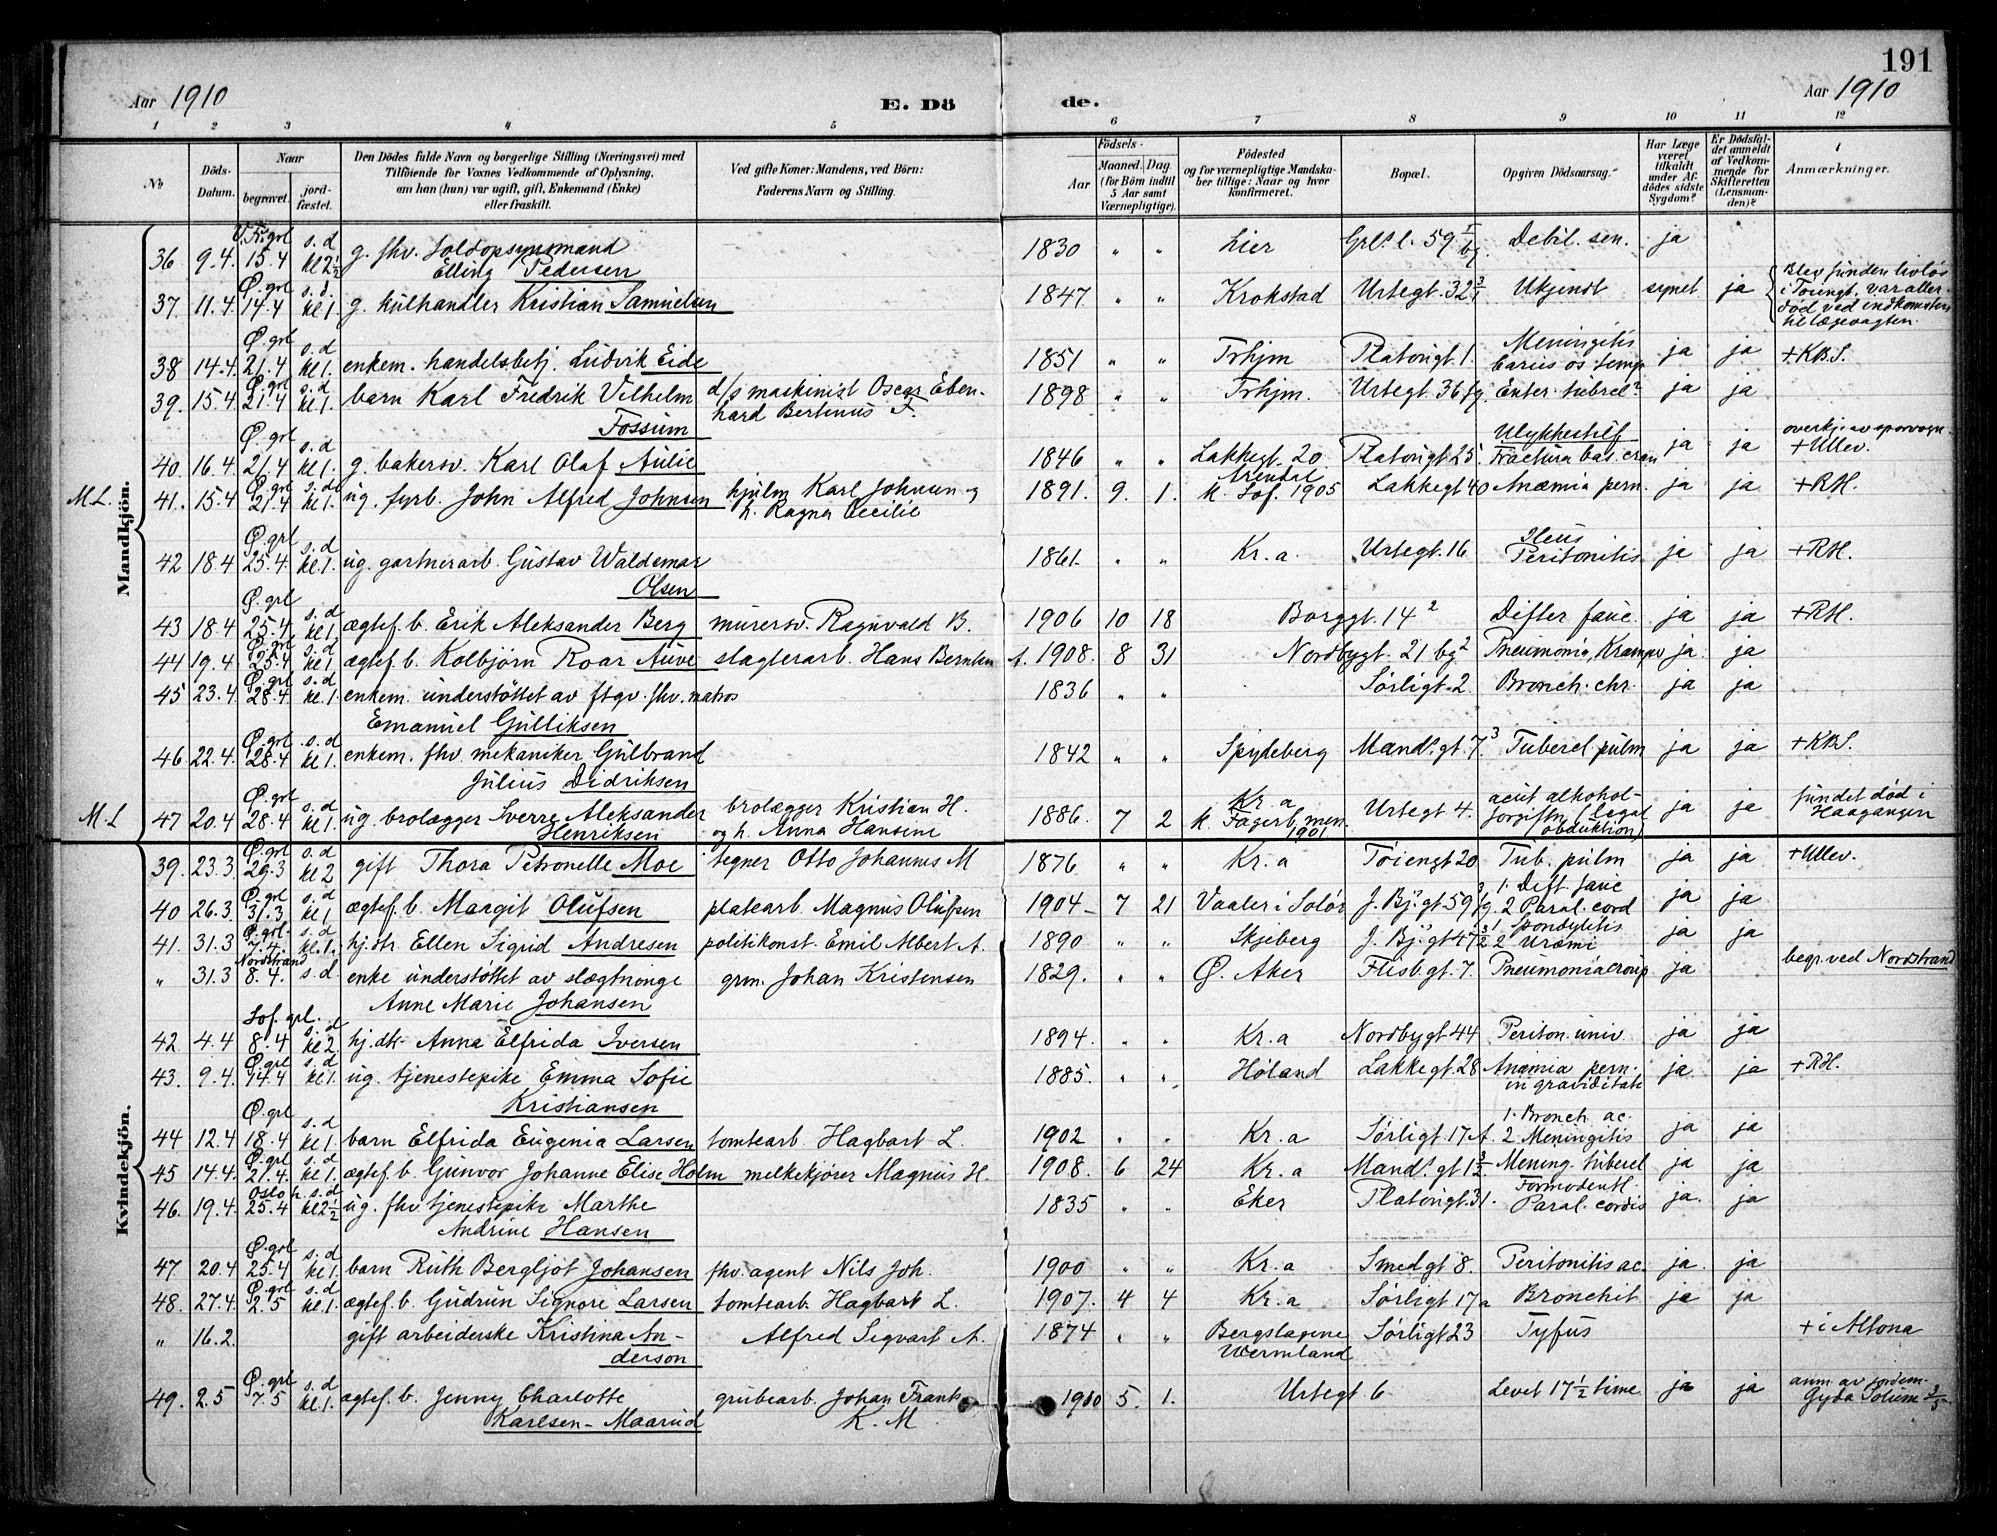 191
Aar 1910
E. Dö
de.
Aar 1910
1 2 3 4 5 6 7 8 9 10 11 12
No
Döds-Datum.
Naar
begravet.
jord-fæstet.
Den Dödes fulde Navn og borgerlige Stilling (Næringsvei) med
Tilföiende for Voxnes Vedkommende af Oplysning,
om han (hun) var ugift, gift, Enkemand (Enke)
eller fraskilt.
Ved gifte Koner: Mandens, ved Börn:
Faderens Navn og Stilling.
Födsels-
Aar
Maaned. Dag.
(for Börn indtil
5 Aar samt
Værnepligtige).
Födested
og for værnepligtige Mandska-
ber tillige: Naar og hvor
konfirmeret.
Bopæl.
Opgiven Dödsaarsag.
Har Læge
været
tilkaldt
under Af-
dödes sidste
Sygdom?
Er Dödsfal-
det anmeldt
af Vedkom-
mende for
Skifteretten
(Lensman-
den)?
Anmærkninger.
Mandkjön.
36 9.4. 15.4 s.d kl 2½ g. fhv. Soldopsynsmand 1830 " " Lier Grl.s l. 59 I bg. Debil. sen. ja
Elling Pedersen
37 11.4. Ø. grl 14.4 s.d. kl 1. g. kulhandler Kristian Samuelsen 1847 " " Krokstad Urtegt. 32 Ukjendt synet ja Blev funden livløs
i Toiengt. var aller.
død ved indkomsten
til lægevagten.
38 14.4. Ø. grl 21.4 s.d kl 1. enkem. handelsbetj. Ludvik Eide 1851 " " Trhjm Platougt 1. Meningitis
Caries os temp ja ja +K.B.S.
39. 15.4. Ø. grl 21.4 s.d kl 1. barn Karl Fredrik Vilhelm d/s maskinist Oscar Eben- 1898 " " Trhjm. Urtegt. 36 Enter. tubrel? ja ja
Fossum hard Bertinus F.
40. 16.4. Ø. grl 21.4 s.d kl 1. g. bakersv. Karl Olaf Aulie 1846 " " Lakkegt. 20 Platougt 25 Ulykkestilf
Fractura bas. cran ja ja overkj. av sporvogn
+ Ullev.
M.L. 41. 15.4 Ø. grl 21.4 s.d. kl 1. ug. fyrb. John Alfred Johnsen hjulm Karl Johnsen og 1891. 9. 1. Arendal
k. Sof. 1905 Lakkegt 40 Anæmia pern. ja ja +RH.
h. Ragna Cecilie
42 18.4 Ø. grl 25.4. s.d kl 1. ug. gartnerarb. Gustav Waldemar 1861. " " Kr.a. Urtegt. 16 Ileus
Peritonitis ja ja +RH.
Olsen
43 18.4 Ø. grl 25.4. s.d kl 1. ægtef. b. Erik Aleksander Berg murersv. Ragnvald B. 1906 10 18 Borggt. 14² Difter fauc ja ja +RH.
44 19.4. Ø. grl 25.4 s.d kl 1 ægtef. b. Kolbjørn Roar Auve slagterarb. Hans Berntsen A. 1908. 8 31 Nordbygt. 21 bg² Pneumonia, Kramper ja. ja
45 23.4. Ø. grl 28.4. s.d kl. 1. enkem. understøttet av ftgv. fhv. matros 1836 " " Sørligt. 2 Bronch. chr. ja ja
Emanuel Gulliksen
46 22.4. Ø. grl 28.4 s.d kl 1. enkem. fhv. mekaniker Gulbrand 1842 " " Spydeberg Mand.s gt. 7.³ Tubercl. pulm ja ja +K.B.S.
Julius Didriksen
M.L 47 20.4 Ø. grl 28.4 s.d kl 1. ug. brolægger Sverre Aleksander brolægger Kristian H. 1886. 7 2 Kr.a
k. Fagerb. men.
1901 Urtegt 4. acut alkohol-
forgiftn. (Legal
obduktion) ja ja fundet død i
Haagangen
Henriksen og h. Anna Hansine
Kvindekjön.
39. 23.3. Ø. grl 29.3 s.d kl 2 gift Thora Petronelle Moe tegner Otto Johannes M 1876 " " Kr.a Töiengt 20 Tub. pulm ja ja +Ullev.
40 26.3. Ø. grl 31.3 s.d kl 1 ægtef. b. Margit Olufsen platearb. Magnus Olufsen 1904- 7 21 Vaaler i Solør J. Bj. gt 59 1. Dift. fauc
2 Paral. cord ja ja
41. 31.3 Ø. grl. 7.4. s.d kl. 1. hj. dtr. Ellen Sigrid Andresen politikonst. Emil Albert A. 1890 " " Skjeberg J. Bj. gt 47 1. Spondylitis
2 Uræmi ja ja
" 31.3 Nordstrand 8.4. s.d. enke understøttet av slægtninge grm. Johan Kristensen 1829. " " Ø. Aker Flisb gt. 7. Pneumonia croup ja begr. ved Nordstrand
Anne Marie Johansen
42. 4.4 Sof. grl. 8.4 s.d kl 2. hj. dtr. Anna Elfrida Iversen 1894. " " Kr.a Nordbygt 44 Periton. univ. ja ja
43. 9.4. Ø. grl 14.4 s.d kl 1. ug. tjenestepike Emma Sofie 1885. " " Høland Lakkegt. 28 Anæmia pern.
in graviditate ja ja +RH.
Kristiansen
44 12.4 Ø. grl 18.4 s.d kl 1. barn Elfrida Eugenia Larsen tomtearb. Hagbart L. 1902 " " Kr.a Sørligt 17 A. 1. Bronch. ac.
2 Meningitis ja ja
45 14.4. Ø. grl 21.4. s.d kl 1. ægtef. b. Gunvor Johanne Elise Holm melkekjører Magnus H. 1908. 6 24 Kr.a Mand.s gt 1 Mening. tuberel ja ja
46. 19.4. Oslo h. 25.4 s.d kl 2½ ug. fhv. tjenestepike Marthe 1835 " " Eker Platougt. 31. Formodentl.
Paral. cordis ja. ja
Andrine Hansen
47. 20.4 Ø. grl 25.4 s.d kl 1. barn Ruth Bergljot Johansen fhv. agent Nils Joh. 1900 " " Kr.a Smedgt 8. Peritonitis ac. ja. ja
48. 27.4. Ø. grl 2.5 s.d kl. 1. ægtef. b. Gudrun Signore Larsen tomtearb. Hagbart L. 1907. 4 4 Kr.a Sørligt 17a Bronchit ja ja
" 16.2. gift arbeiderske Kristina An- Alfred Sigvart A. 1874 " " Bergslagene
Wermland Sørligt 23 Tyfus + i Altona
derson
49. 2.5 Ø. grl 7.5 s.d kl 1. ægtef. b. Jenny Charlotte grubearb. Johan Frank 1910 5. 1. Urtegt 6 Levet 17½ time ja ja anm. av jordem.
Gyda Solum 3/5
Karlsen-Maarud K. M.